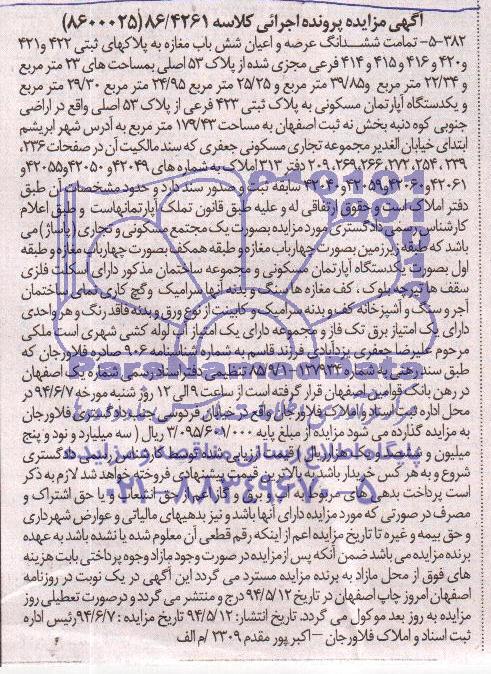 آگهی مزایده پرونده اجرائی کلاسه ۸۶/۴۲۶۱ (۸۶۰۰۰۲۵)
۵-۳۸۲- تمامت ششدانگ عرصه و اعیان شش باب مغازه به پلاکهای ثبتی ۴۲۲ و ۴۲۱
و ۴۲۰ و ۴۱۶ و ۴۱۵ و ۴۱۴ فرعی مجزی شده از پلاک ۵۳ اصلی بمساحت های ۲۳ متر مربع
و ۲۲/۳۴ متر مربع و ۳۹/۸۵ متر مربع و ۲۵/۲۵ متر مربع ۲۴/۹۵ متر مربع ۲۹/۳۰ متر مربع
و یکدستگاه آپارتمان مسکونی به پلاک ثبتی ۴۲۳ فرعی از پلاک ۵۳ اصلی واقع در اراضی
جنوبی کوه دنبه بخش نه ثبت اصفهان به مساحت ۱۷۹/۴۳ متر مربع به آدرس شهر ابریشم
ابتدای خیابان الغدیر مجموعه تجاری مسکونی جعفری که سند مالکیت آن در صفحات ۲۳۶،
۲۳۹، ۲۵۴، ۲۷۲، ۲۶۶، ۲۶۹، ۲۰۹ دفتر ۳۱۳ املاک به شماره های ۴۲۰۴۹ و ۴۲۰۵۰ و ۴۲۰۵۵و
۴۲۰۶۱ و ۴۲۰۶۰ و ۴۲۰۵۹ و ۴۲۰۴۰ سابقه ثبت و صدور سند دارد و حدود مشخصات آن طبق
دفتر املاک است و حقوق ارتفاقی له و علیه طبق قانون تملک آپارتمانهاست و طبق اعلام
کارشناس رسمی دادگستری مورد مزایده بصورت یک مجتمع مسکونی و تجاری (پاساژ) می
باشد که طبقه زیرزمین بصورت چهارباب مغازه و طبقه همکف بصورت چهارباب مغازه و طبقه
اول بصورت یکدستگاه آپارتمان مسکونی و مجموعه ساختمان مذکور دارای اسکلت فلزی
سقف ها تیرچه بلوک، کف مغازه ها سنگ و بدنه آنها سرامیک و گچ کاری نمای ساختمان
آجر و سنگ و آشپزخانه کف و بدنه سرامیک و کابینت از نوع ورق و بدنه فاقد رنگ و هر واحدی
دارای یک امتیاز برق تک فاز و مجموعه دارای یک امتیاز آب لوله کشی شهری است ملکی
مرحوم علیرضا جعفری یزدآبادی فرزند قاسم به شماره شناسنامه ۹۰۶ صادره فلاورجان که
طبق سند رهنی به شماره ۱۳۷۹۳۴- ۸۵/۹/۱ تنظیمی دفتر اسناد رسمی شماره یک اصفهان
در رهن بانک قوامین اصفهان قرار گرفته است از ساعت ۹ الی ۱۲ روز شنبه مورخه ۹۴/۶/۷ در
محل اداره ثبت اسناد و املاک فلاورجان واقع در خیابان فردوسی جنب دادگستری فلاورجان
به مزایده گذارده می شود مزایده از مبلغ پایه ۳/۰۹۵/۶۰۱/۰۰۰ ریال (سه میلیارد و نود و پنج
میلیون و ششصد و یک هزار ریال) قیمت ارزیابی شده توسط کارشناس رسمی دادگستری
شروع و به هر کس خریدار باشد به بالاترین قیمت پیشنهادی فروخته خواهد شد لازم به ذکر
است پرداخت بدهی های مربوط به آب و برق و گاز اعم از حق انشعاب و یا حق اشتراک و
مصرف در صورتی که مورد مزایده دارای آنها باشد و نیز بدهیهای مالیاتی و عوارض شهرداری
و حق بیمه و غیره تا تاریخ مزایده اعم از اینکه رقم قطعی آن معلوم شده یا نشده باشد به عهده
برنده مزایده می باشد ضمن آنکه پس از مزایده در صورت وجود مازاد وجوه پرداختی بابت هزینه
های فوق از محل مازاد به برنده مزایده مسترد می گردد این آگهی در یک نوبت در روزنامه
اصفهان امروز چاپ اصفهان در تاریخ ۹۴/۵/۱۲ درج و منتشر می گردد و درصورت تعطیلی روز
مزایده به روز بعد موکول می گردد. تاریخ انتشار: ۹۴/۵/۱۲ تاریخ مزایده: ۹۴/۶/۷ رئیس اداره
ثبت اسناد و املاک فلاورجان – اکبر پور مقدم ۲۳۰۹ /م الف
پایگاه اطلاع رسانی مناقصه و مزایده
۰۲۱-۸۸۳۴۹۶۷۰-۵